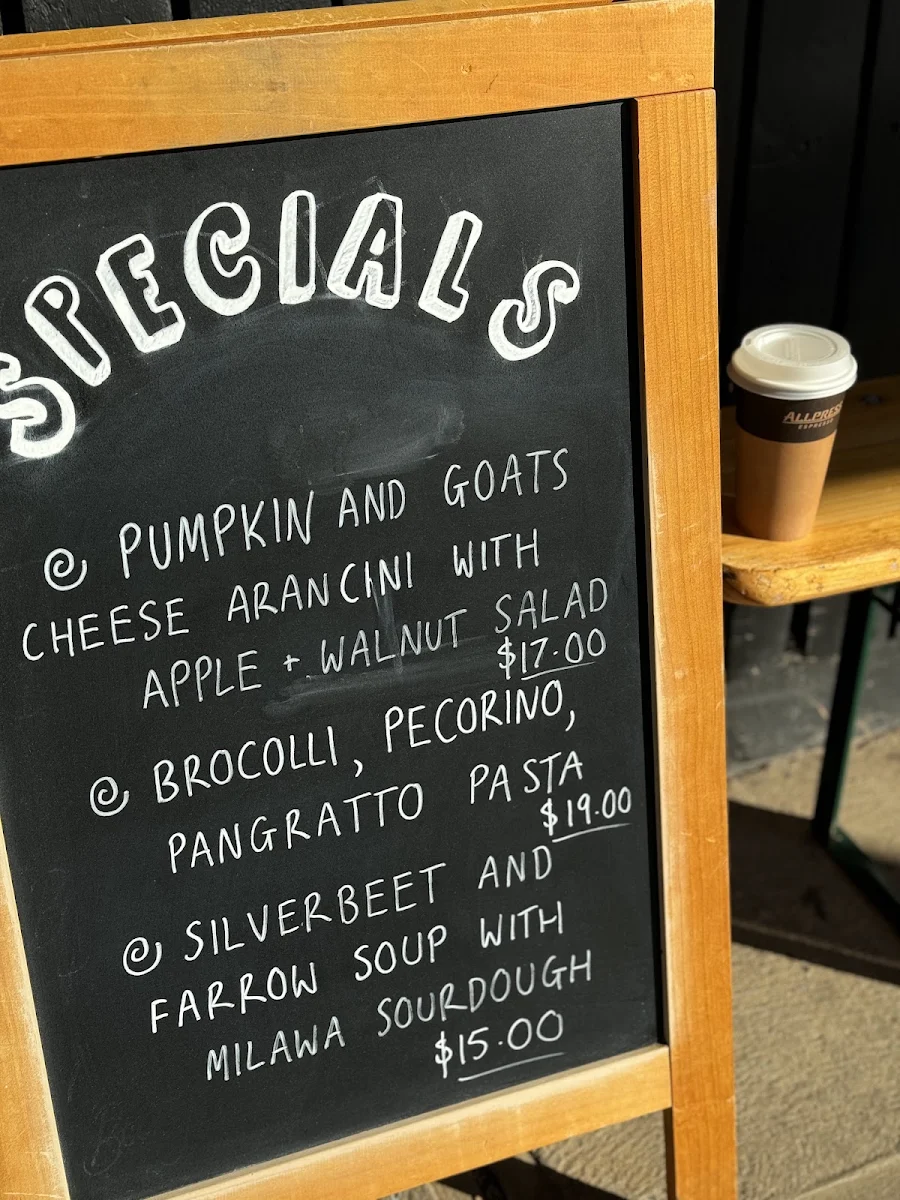 SPECIALS
PUMPKIN AND GOATS
CHEESE ARANCINI WITH
APPLE + WALNUT SALAD
$17.00
BROCOLLI, PECORINO,
PANGRATTO PASTA
$19.00
SILVERBEET AND
FARROW SOUP WITH
MILAWA SOURDOUGH
$15.00
ALLPRESS
ESPRESSO